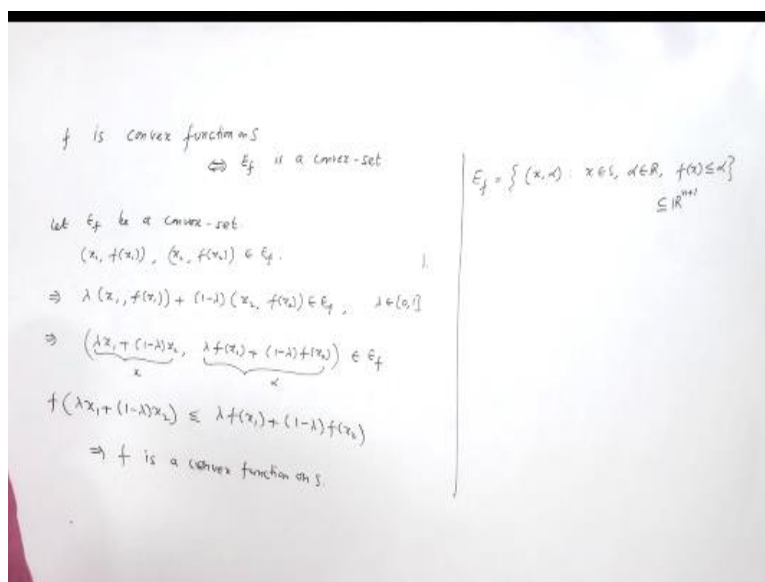 f is convex function on S
⇔ E_f is a convex-set
Let E_f be a convex-set
(x₁, f(x₁)), (x₂, f(x₂)) ∈ E_f.
⇒ λ(x₁, f(x₁)) + (1-λ)(x₂, f(x₂)) ∈ E_f, λ∈[0,1]
⇒ (λx₁ + (1-λ)x₂, λf(x₁) + (1-λ)f(x₂)) ∈ E_f
x α
f(λx₁ + (1-λ)x₂) ≤ λf(x₁) + (1-λ)f(x₂)
⇒ f is a convex function on S.
E_f = {(x, α) : x ∈ S, α ∈ R, f(x) ≤ α}
⊆ ℝⁿ⁺¹